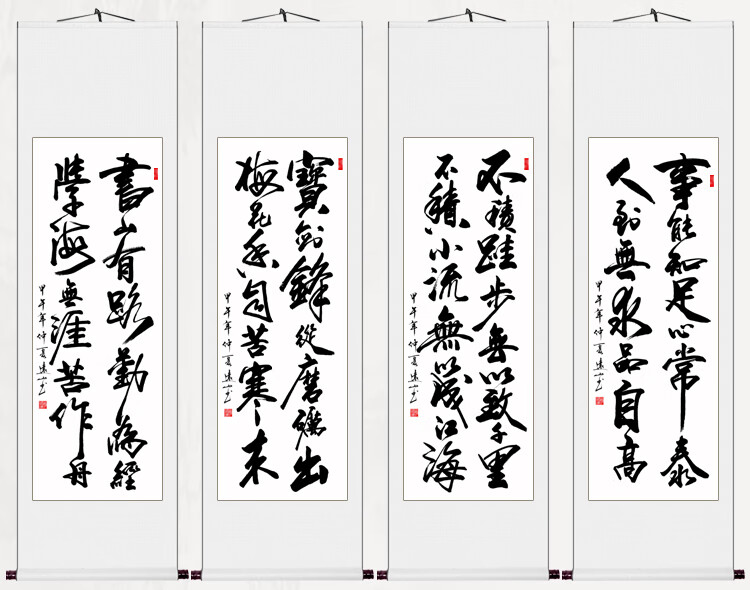 書山有路勤為經
學海無涯苦作舟
甲午年仲夏
寶劍鋒從磨礪出
梅花香自苦寒來
甲午年仲夏
不積跬步無以致千里
不積小流無以成江海
甲午年仲夏
事能知足心常泰
人到無求品自高
甲午年仲夏